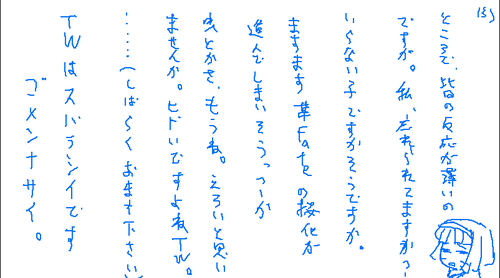 ところで、皆の反応が薄いの
ですが。私、忘れられてますか?
いらない子ですかそうですか。
ますます 某Fateの桜化が
進んでしまいそうっつーか
虫とかさ、もうね。えろいと思い
ませんか。ヒドいですよねTW。
……(しばらくおまち下さい
TWはスバラシイです
ゴメンナサイ。